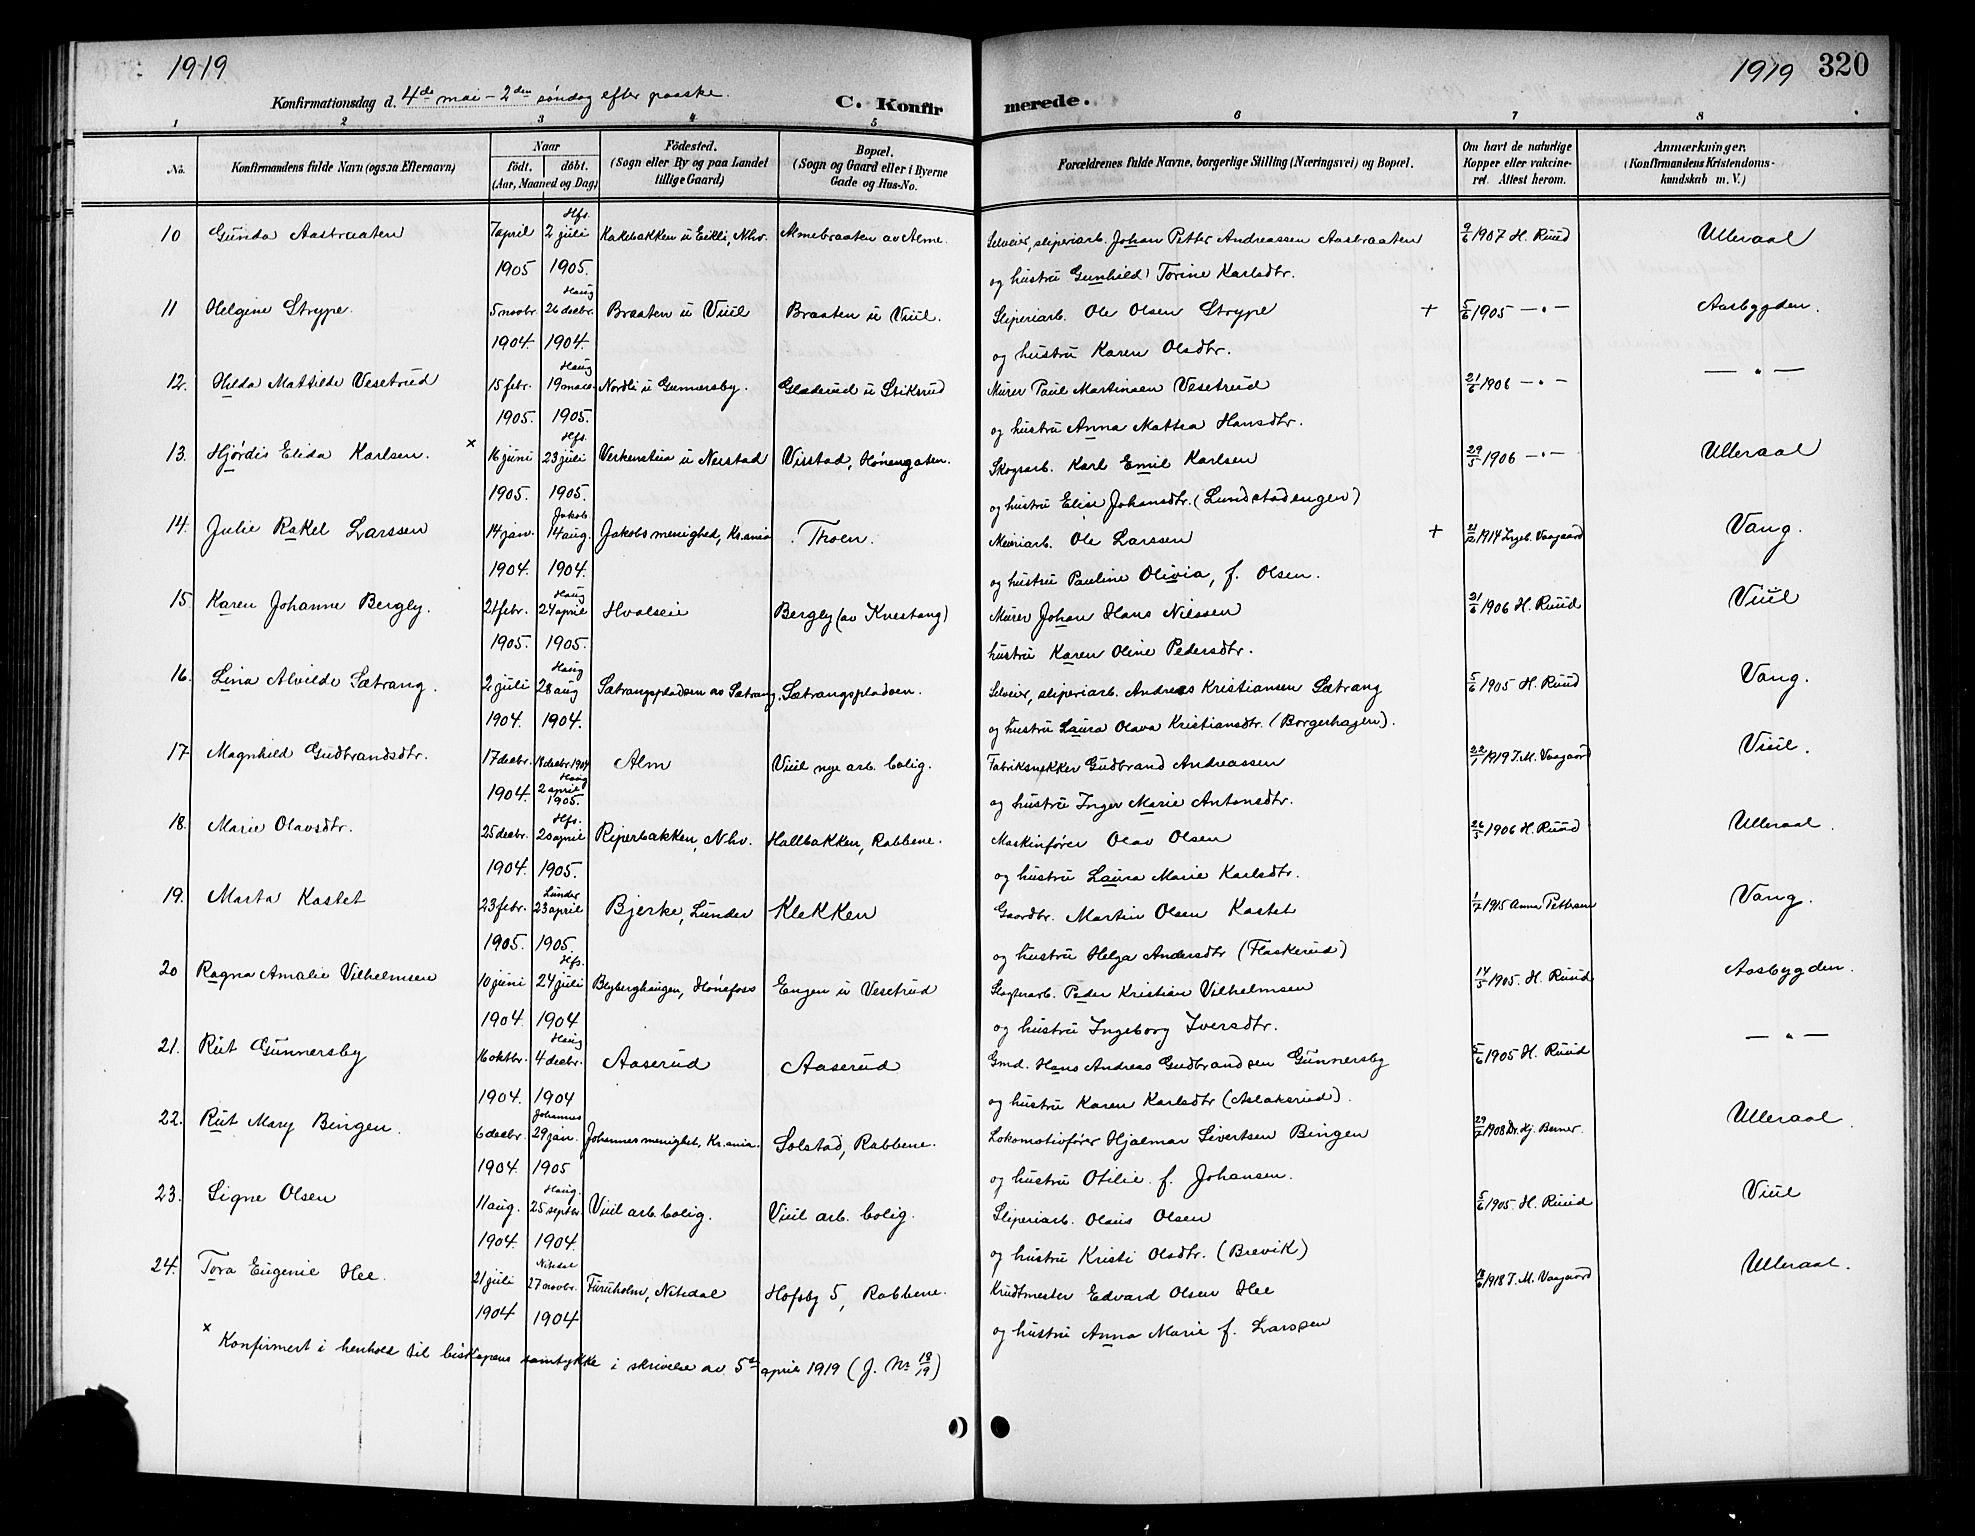 1919
1919 320
Konfirmationsdag d. 4de mai - 2den søndag efter paaske.
C. Konfirmerede.
1 2 3 4 5 6 7 8
No. Konfirmandens fulde Navn (ogsaa Efternavn) Naar født. døbt. (Aar, Maaned og Dag) Fødested. (Sogn eller By og paa Landet tillige Gaard) Bopæl. (Sogn og Gaard eller i Byerne Gade og Hus-No. Forældrenes fulde Navne, borgerlige Stilling (Næringsvei) og Bopæl. Om havt de naturlige Kopper eller vakcineret. Attest herom. Anmærkninger. (Konfirmandens Kristendomskundskab m. V.)
Hfs.
10 Gunda Aasbraaten 7 april 2 juli Kakebakken u Eikli, Nhv. Almebraaten av Alme. Selveier, sliperiarb. Johan Petter Andreassen Aasbraaten 9/6 1907 H. Ruud Ulleraal
1905 1905. og hustru Gunhild Torine Karlsdtr.
Haug
11 Helgine Strype. 5 novbr. 26 decbr. Braaten u Viul Braaten u Viul. Sliperiarb. Ole Olsen Strype + 5/6 1905 — " — Aasbygden.
1904. 1904. og hustru Karen Olsdtr.
Haug
12. Hilda Mathilde Vesetrud 15 febr. 19 mars Nordli u Gunnersby. Gladerud u Stiksrud Murer Paul Martinsen Vesetrud 21/6 1906 — " — — " —
1905. 1905. og hustru Anna Mathea Hansdtr.
Hfs.
13. Hjørdis Elida Karlsen. × 16 juni 23 juli Verkensteia u Nerstad Visstad, Hønengaten. Skogsarb. Karl Emil Karlsen 29/5 1906 — " — Ulleraal
1905. 1905. og hustru Elise Johansdtr. (Lundstadengen)
Jakob
14. Julie Rakel Larssen 14 jan. 14 aug. Jakobs menighed, Kr.ania Thoen. Meieriarb. Ole Larssen + 1914 Ingeb. Vaagaard Vang.
1904. 1904. og hustru Pauline Olivia, f. Olsen.
Haug
15. Karen Johanne Bergly. 21 febr. 24 april Hvalseie Bergly (av Kvestang) Murer Johan Hans Nilssen 21/6 1906 H. Ruud Viul
1905. 1905. hustru Karen Oline Pedersdtr.
Haug
16. Lina Alvilde Sætrang. 2 juli 28 aug Sætrangspladsen av Sætrang. Sætrangspladsen. Selveier, sliperiarb. Andreas Kristiansen Sætrang 5/6 1905 H. Ruud Vang.
1904. 1904. og hustru Laura Olava Kristiansdtr. (Borgerhagen).
17. Magnhild Gudbrandsdtr. 17 decbr. 18 decbr. 1904 Alm Viul nye arb. bolig. Fabriksnekker Gudbrand Andreassen 22/1 1919 I. M. Vaagaard Viul.
1904. Haug 2 april 1905. og hustru Inger Marie Antonsdtr.
Hfs.
18. Marie Olavsdtr. 25 decbr. 20 april Riperbakken, Nhv. Hallbakken, Rabbene. Maskinfører Olav Olsen 26/5 1906 H. Ruud Ulleraal.
1904. 1905. og hustru Laura Marie Karlsdtr.
Lunder
19. Marta Kastet 23 febr. 23 april Bjerke, Lunder Klekken Gaardbr. Martin Olsen Kastet 1/7 1915 Anna Pettersen Vang.
1905. 1905. og hustru Helga Andersdtr (Flaskerud)
Hfs.
20 Ragna Amalie Vilhelmsen 10 juni 24 juli Blyberghaugen, Hønefoss Engen u Vesetrud Slagterarb. Peder Kristian Vilhelmsen 14/5 1905. H. Ruud Aasbygden.
1904. 1904 og hustru Ingeborg Iversdtr.
Haug
21. Rut Gunnersby 16 oktbr. 4 decbr. Aaserud Aaserud Gmd. Hans Andreas Gudbrandsen Gunnersby 5/6 1905 H. Ruud — " —
1904. 1904 og hustru Karen Karlsdtr (Aslaksrud).
Johannes
22. Rut Mary Bingen. 6 decbr. 29 jan. Johannes menighet, Kr.ania. Solstad, Rabbene. Lokomotivfører Hjalmar Sivertsen Bingen 1908 Dr. Hj. Berner. Ulleraal.
1904. 1905 og hustru Otilie f. Johansen.
Haug.
23. Signe Olsen 11 aug. 25 septbr. Viul arb. bolig. Viul arb. bolig. Sliperiarb. Olaus Olsen 5/6 1905. H. Ruud Viul
1904. 1904. og hustru Kristi Olsdtr. (Brevik)
Nitedal
24. Tora Eugenie Hee. 21 juli 27 novbr. Furuholm, Nitedal Hofsby 5, Rabbene. Krudtmester Edvard Olsen Hee 18/6 1918 I. M. Vaagaard Ulleraal.
1904 1904 og hustru Anna Marie f. Larssen
× Konfirmert i henhold til biskopens samtykke i skrivelse av 5te april 1919 (J. Nr 18/19)